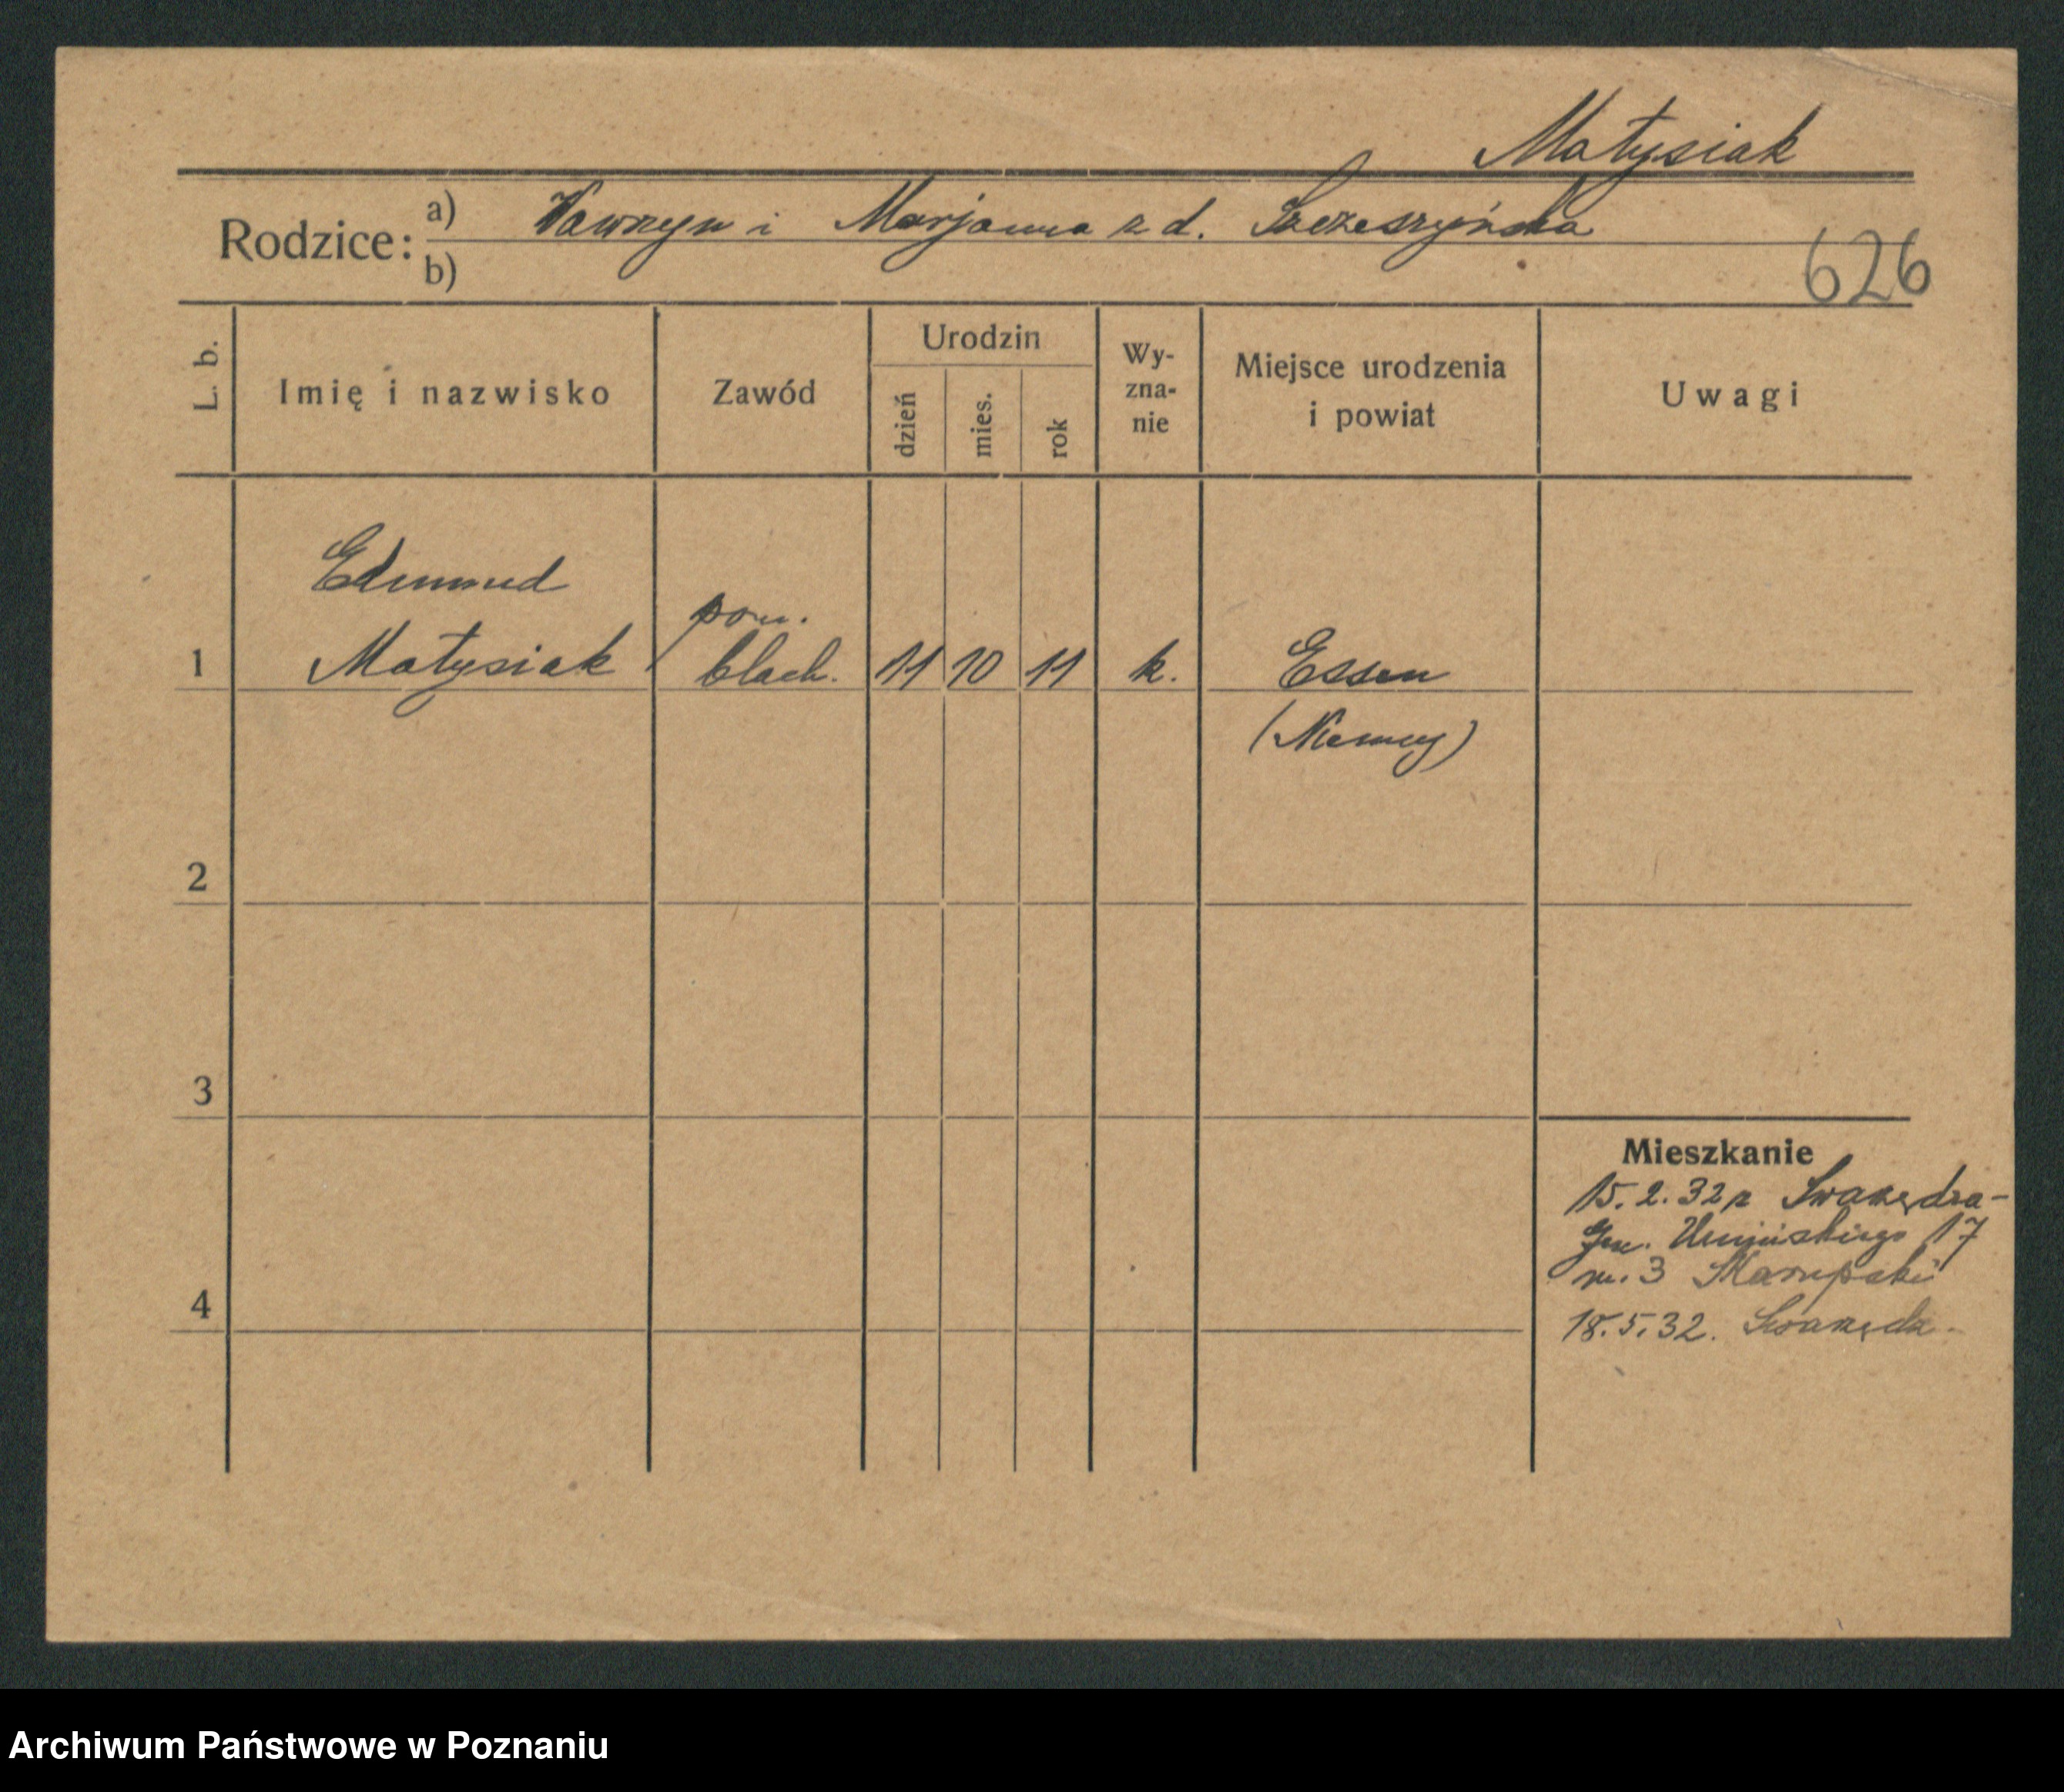 Matysiak
Rodzice: a) Wawrzyn i Marjanna z d. Szczeszyńska
b)
626
L. b.
Imię i nazwisko
Zawód
Urodzin
dzień
mies.
rok
Wy-
zna-
nie
Miejsce urodzenia
i powiat
Uwagi
Edmund
pom.
1 Matysiak blach. 11 10 11 k. Essen
(Niemcy)
2
3
Mieszkanie
15.2.32 z Swarzędza-
Gen. Umińskiego 17
m. 3
4
18.5.32.
Archiwum Państwowe w Poznaniu